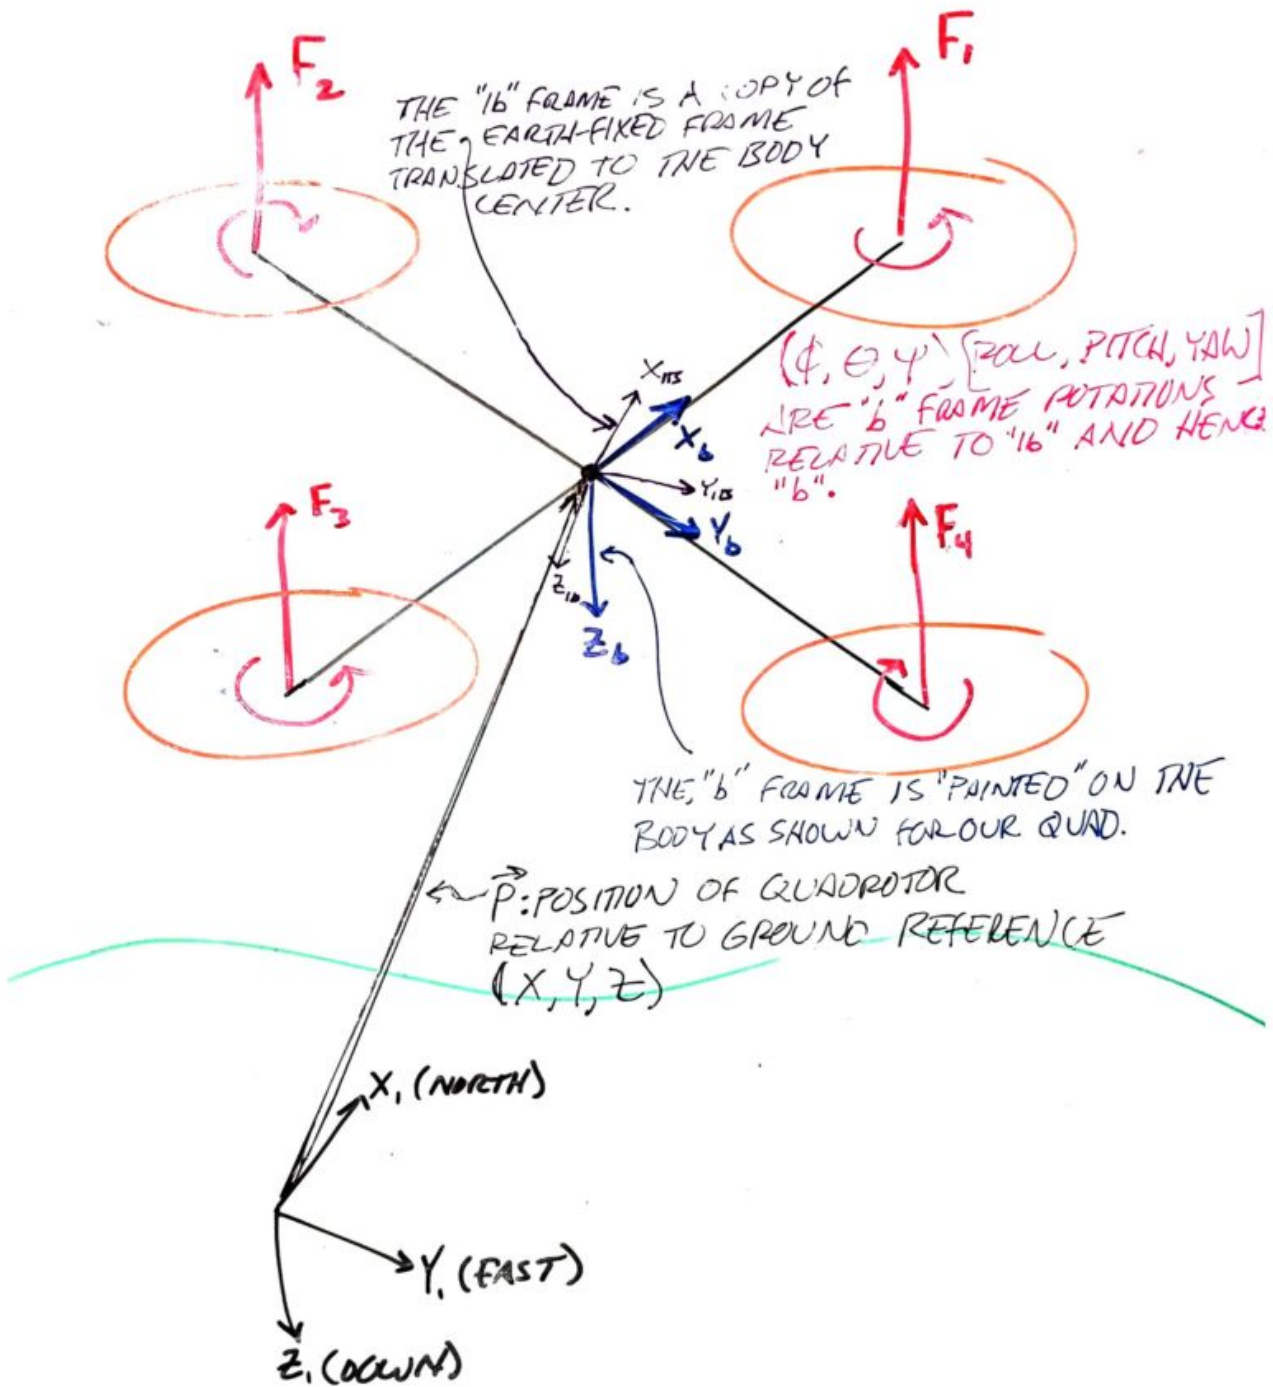 F₂
F₁
THE "1b" FRAME IS A COPY OF
THE EARTH-FIXED FRAME
TRANSLATED TO THE BODY
CENTER.
(ϕ, θ, ψ) [ROLL, PITCH, YAW]
ARE "b" FRAME ROTATIONS
RELATIVE TO "1b" AND HENCE
"b".
X₁B
X_b
Y₁B
Y_b
Z₁b
Z_b
F₃
F₄
THE "b" FRAME IS "PAINTED" ON THE
BODY AS SHOWN FOR OUR QUAD.
P⃗: POSITION OF QUADROTOR
RELATIVE TO GROUND REFERENCE
(X, Y, Z)
X₁ (NORTH)
Y₁ (EAST)
Z₁ (DOWN)